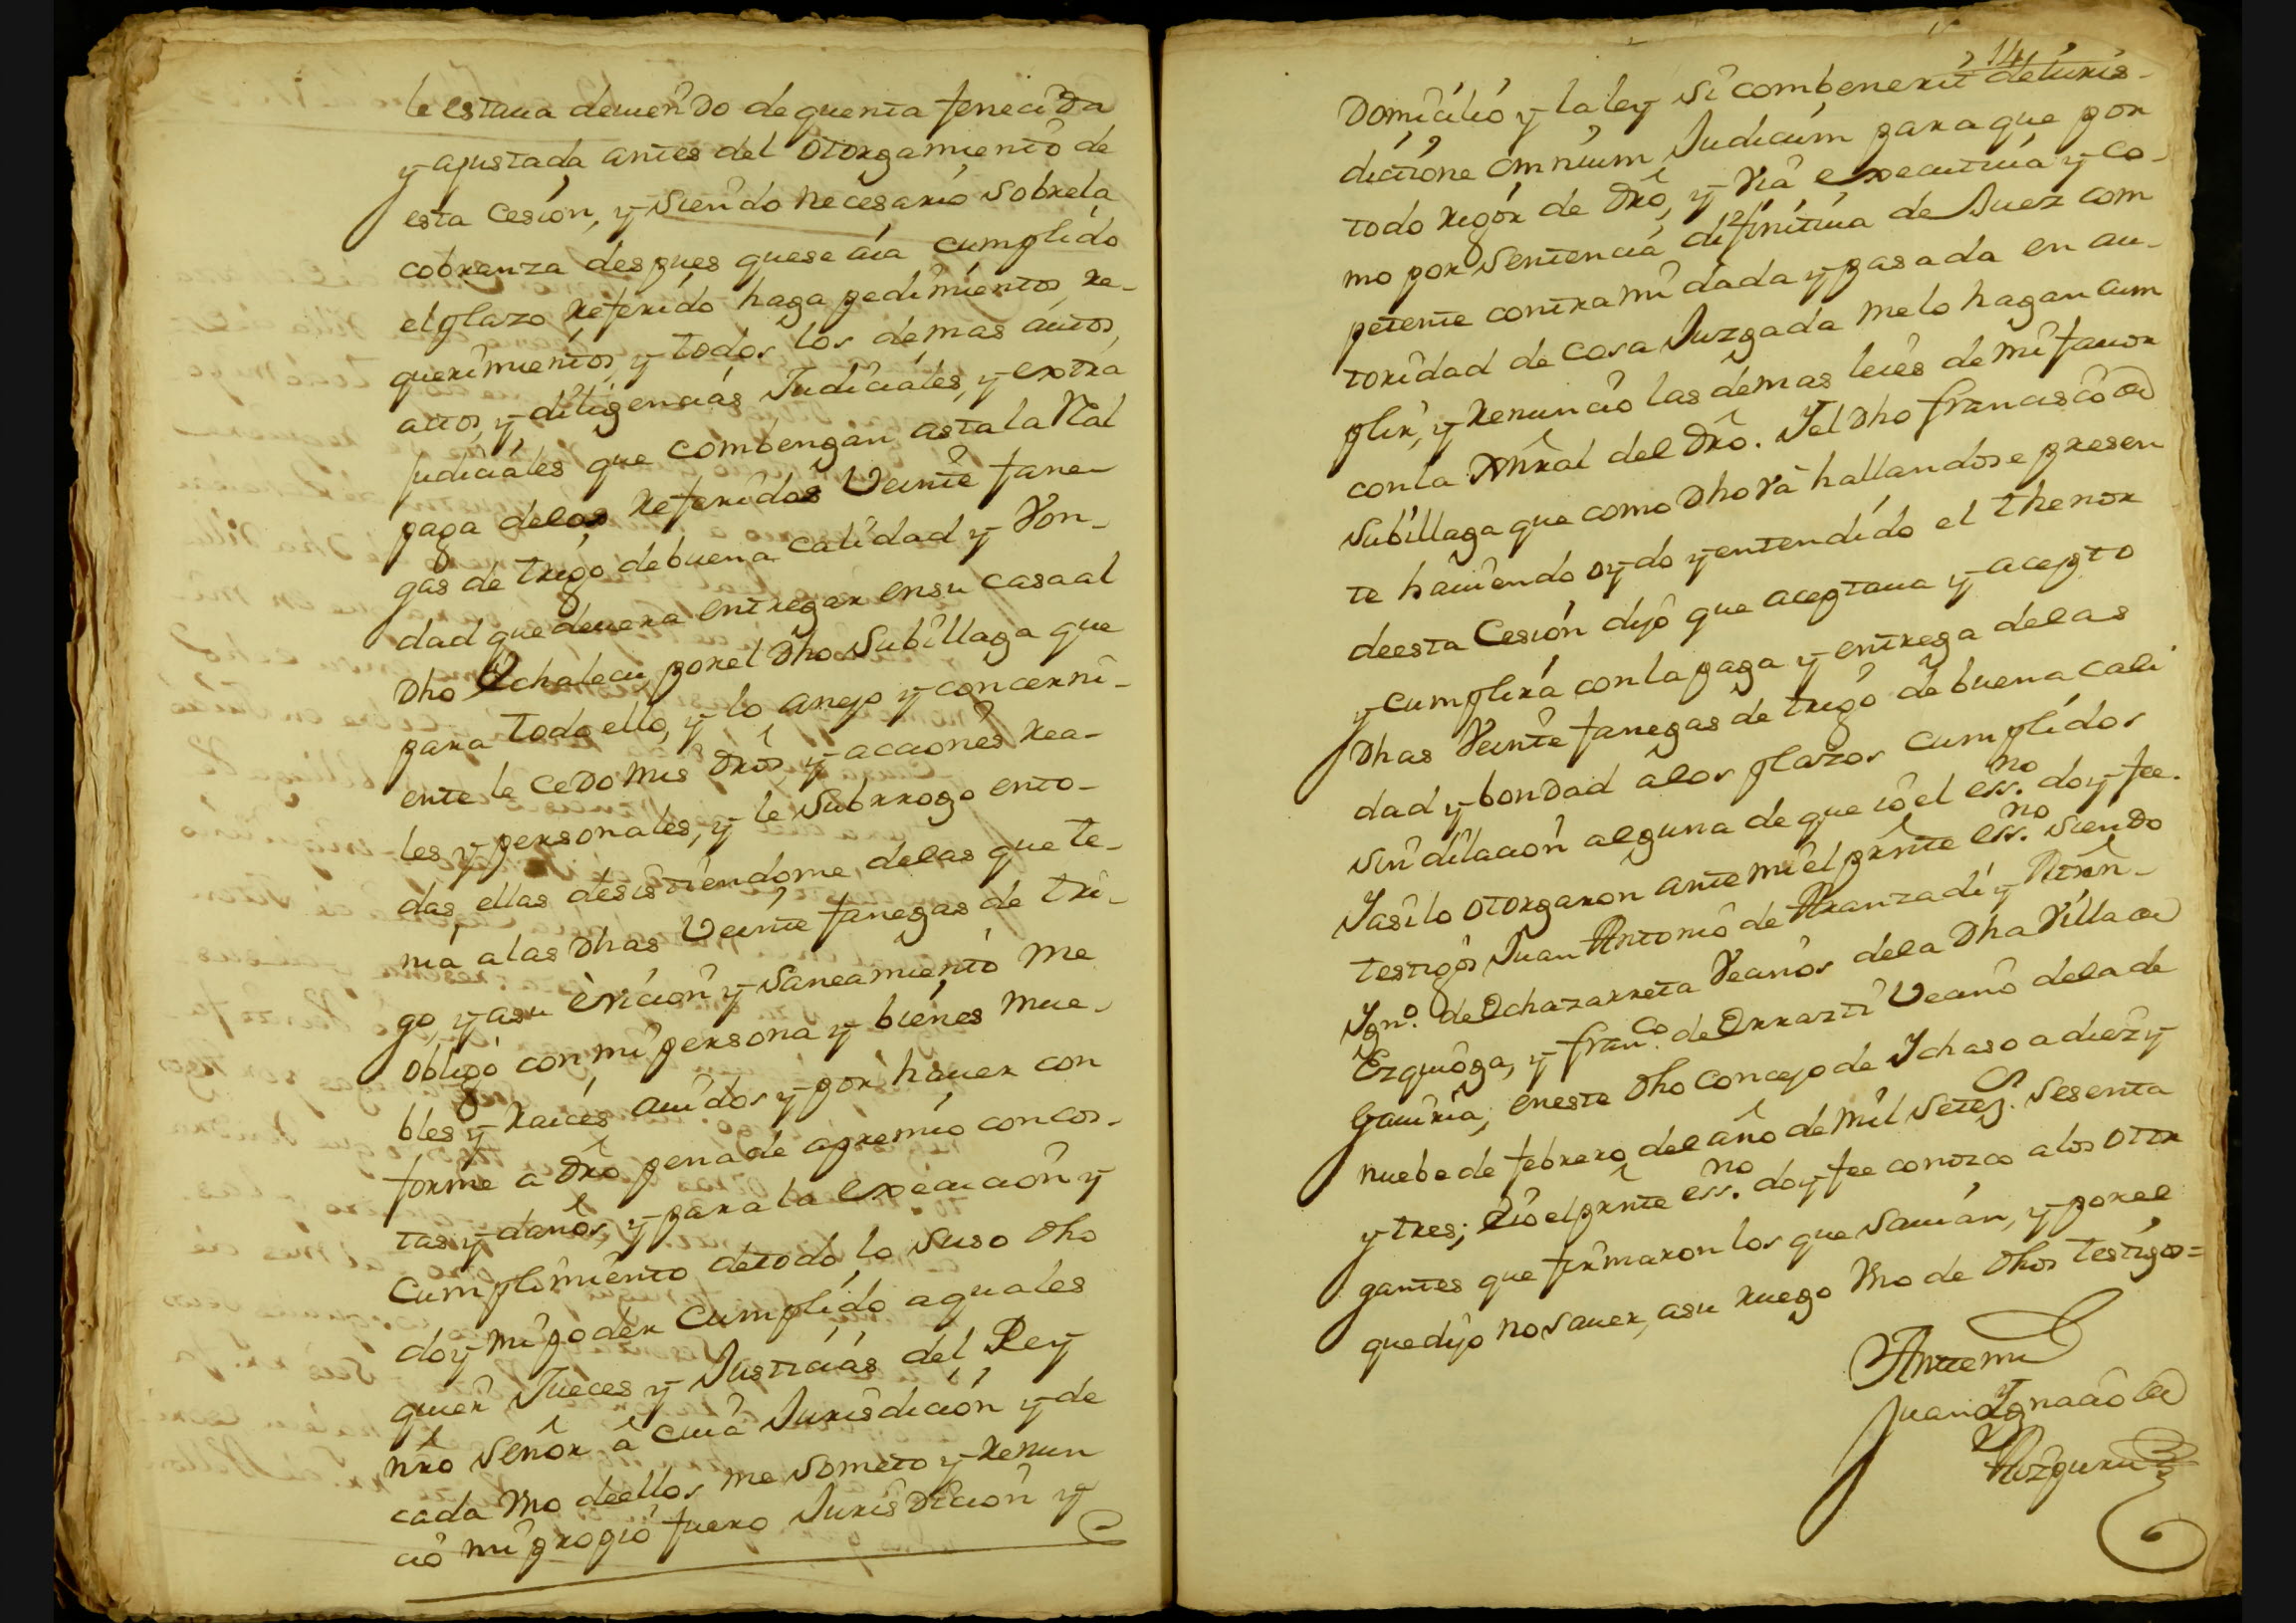 le estaua deuendo de quenta fenecida
y ajustada antes del otorgamiento de
esta Cesion, y siendo necesario sobrela
cobranza despues quese aia cumplido
el plazo referido haga pedimientos, re-
querimientos, y todos los demas autos,
attos, y diligencias Judiciales, y extra
judiciales que combengan asta la Rl
paga delas referidas Veinte fane-
gas de trigo debuena calidad y Von-
dad que deuera entregar ensu casa al
Dho Ochalecu, porel Dho Subillaga que
para todo ello, y lo anejo y concerni-
ente le cedo mis dros, y acciones rea-
les y personales, y le Subrrogo ento-
das ellas desistiendome, delas que te-
nia a las Dhas Veinte fanegas de tri-
go, y asu Evicion y Saneamiento me
obligo con mi persona y bienes mue-
bles y raices auidos y por hauer con
forme a dro pena de apremio con cos-
tas y daños, y para la execucion y
Cumplimiento detodo lo suso dho
doy mi poder Cumplido aquales
quier Jueces y Justicias del Rey
nro Señor â cuia Jurisdicion y de
cada vno deellos me someto y renun
cio mi propio fuero Jurisdicion y
14
Domicilio y la ley si combenerit de Juris-
dictione omnium Judicum para que por
todo rigor de dro, y via executiua y co-
mo por sentencia difinitiua de Juez com
petente contra mi dada y pasada en au-
toridad de cosa Juzgada melo hagan cum
plir, y renuncio las demas leies de mi fauor
conla Gnral del dro. Y el Dho francisco de
Subillaga que como Dho va hallandose presen
te hauiendo oydo y entendido el thenor
deesta Cesion dijo que aceptaua y acepto
y cumplira con la paga y entrega delas
Dhas Veinte fanegas de trigo de buena cali
dad y bondad alos plazos cumplidos
sin dilacion alguna de que io el ess.no doy fee.
Y asi lo otorgaron ante mi el prnte ess.no siendo
testigos Juan Antonio de Aranzadi y
Ygn.º de Ochazarreta Vecinos dela Dha Villa de
Ezquioga, y fran.co de Orrazti Vecino dela de
Gauiria, en este Dho Concejo de Ichaso a diez y
nuebe de febrero del año de mil setez.s Sesenta
y tres; E io el prnte ess.no doy fee conozco a los otor
gantes que firmaron los que sauian, y porel
que dijo no sauer, asu ruego vno de Dhos testigos=
Antemi
Juan Ygnacio de